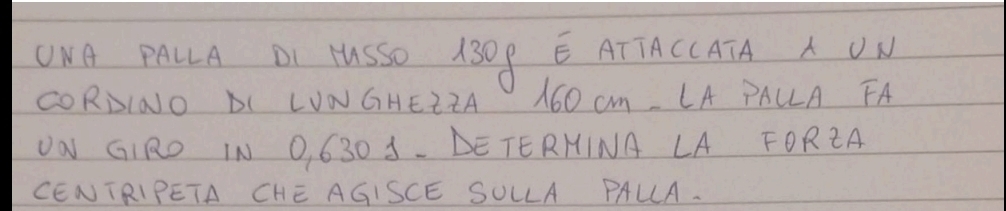 UNA PALLA DI MASSO 130g É ATTACCATA A UN
CORDINO DI LUNGHEZZA 160 cm - LA PALLA FA
UN GIRO IN 0,630 s - DETERMINA LA FORZA
CENTRIPETA CHE AGISCE SULLA PALLA -